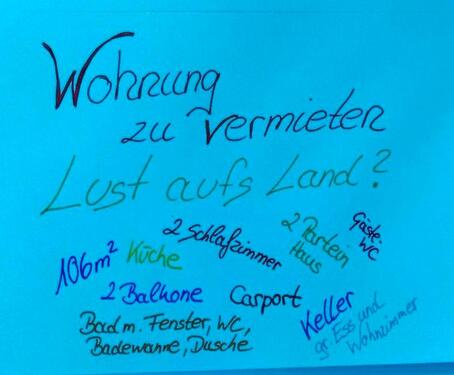 Wohnung
zu vermieten
Lust aufs Land?
106m² Küche
2 Schlafzimmer
2 Partein
Haus
Gäste-
WC
2 Balkone
Carport
Keller
gr. Ess und
Wohnzimmer
Bad m. Fenster, WC,
Badewanne, Dusche